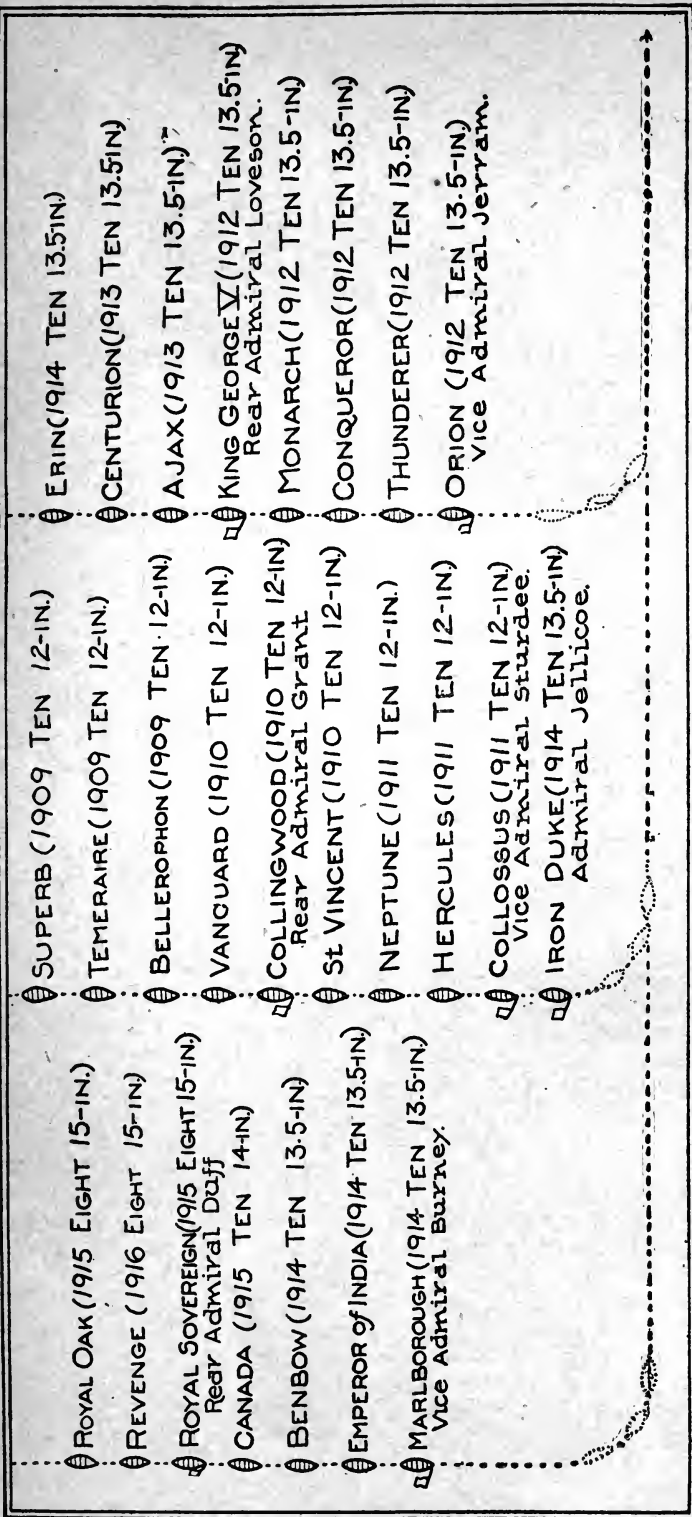 ROYAL OAK (1915 EIGHT 15-IN.)
REVENGE (1916 EIGHT 15-IN.)
ROYAL SOVEREIGN (1915 EIGHT 15-IN.)
Rear Admiral Duff
CANADA (1915 TEN 14-IN.)
BENBOW (1914 TEN 13.5-IN.)
EMPEROR of INDIA (1914 TEN 13.5-IN.)
MARLBOROUGH (1914 TEN 13.5-IN.)
Vice Admiral Burney.
SUPERB (1909 TEN 12-IN.)
TEMERAIRE (1909 TEN 12-IN.)
BELLEROPHON (1909 TEN 12-IN.)
VANGUARD (1910 TEN 12-IN.)
COLLINGWOOD (1910 TEN 12-IN)
Rear Admiral Grant
St VINCENT (1910 TEN 12-IN.)
NEPTUNE (1911 TEN 12-IN.)
HERCULES (1911 TEN 12-IN)
COLLOSSUS (1911 TEN 12-IN.)
Vice Admiral Sturdee.
IRON DUKE (1914 TEN 13.5-IN)
Admiral Jellicoe.
ERIN (1914 TEN 13.5-IN.)
CENTURION (1913 TEN 13.5-IN)
AJAX (1913 TEN 13.5-IN.)
KING GEORGE V (1912 TEN 13.5-IN)
Rear Admiral Loveson.
MONARCH (1912 TEN 13.5-IN)
CONQUEROR (1912 TEN 13.5-IN)
THUNDERER (1912 TEN 13.5-IN)
ORION (1912 TEN 13.5-IN.)
Vice Admiral Jerram.